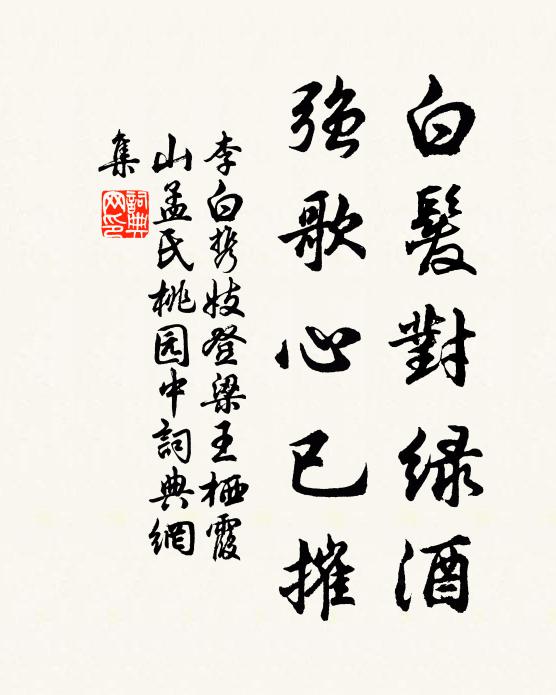 白髮對绿酒
強歌心已摧
李白携妓登梁王栖霞
山孟氏桃园中詞典網
集
詞典网印